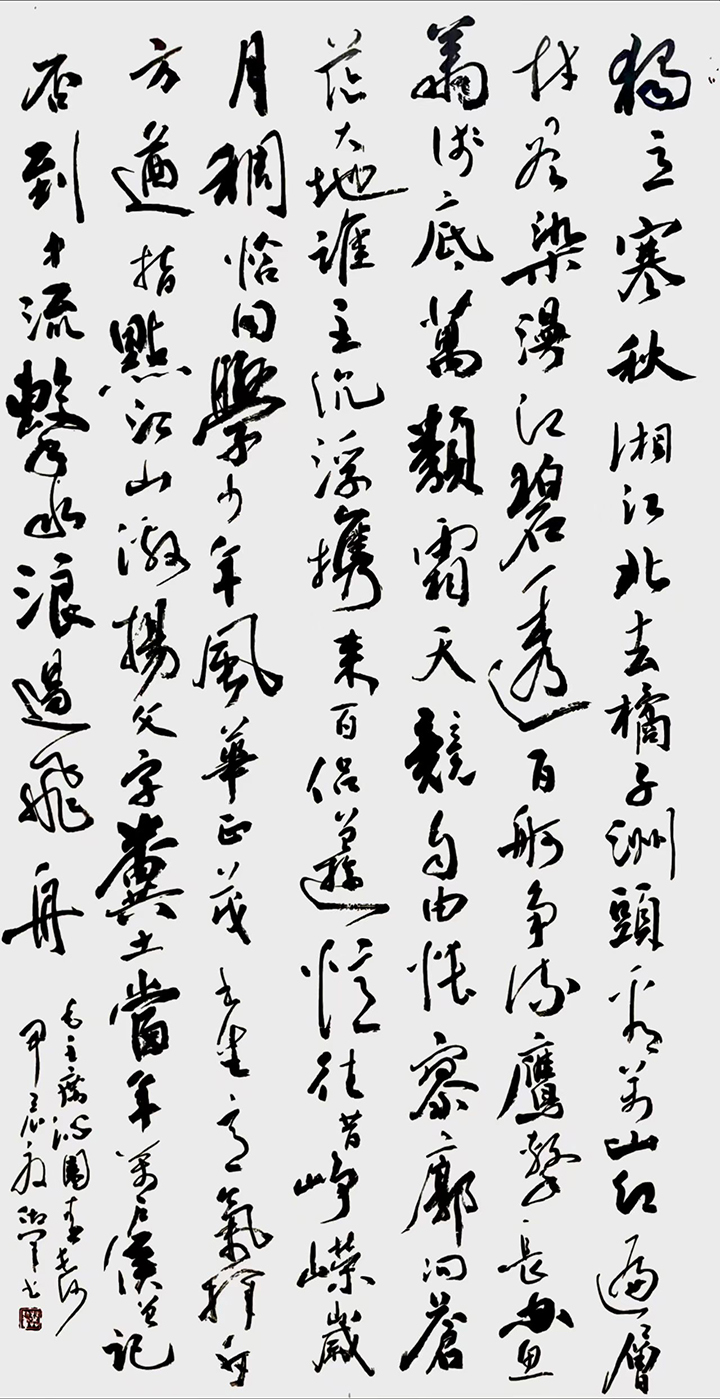 獨立寒秋湘江北去橘子洲頭看萬山紅遍層
林盡染漫江碧透百舸爭流鷹擊長空魚
翔淺底萬類霜天競自由悵寥廓問蒼
茫大地誰主沉浮携來百侶曾遊憶往昔崢嶸歲
月稠恰同學少年風華正茂書生意氣揮斥
方遒指點江山激揚文字糞土當年萬戶侯曾記
否到中流擊水浪遏飛舟
毛主席沁園春長沙
甲辰 書